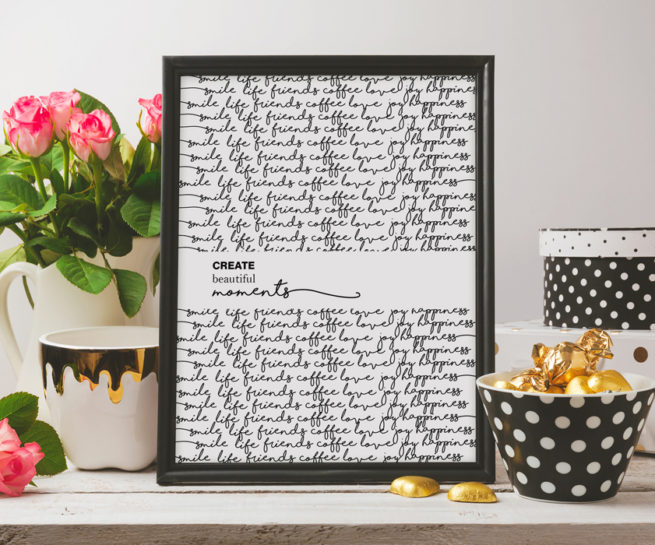 smile life friends coffee love joy happiness
smile life friends coffee love joy happiness
smile life friends coffee love joy happiness
smile life friends coffee love joy happiness
smile life friends coffee love joy happiness
smile life friends coffee love joy happiness
smile life friends coffee love joy happiness
smile life friends coffee love joy happiness
smile life friends coffee love joy happiness
smile life friends coffee love joy happiness
smile life friends coffee love joy happiness
smile life friends coffee love joy happiness
smile life friends coffee love joy happiness
smile life friends coffee love joy happiness
CREATE
beautiful
moments
smile life friends coffee love joy happiness
smile life friends coffee love joy happiness
smile life friends coffee love joy happiness
smile life friends coffee love joy happiness
smile life friends coffee love joy happiness
smile life friends coffee love joy happiness
smile life friends coffee love joy happiness
smile life friends coffee love joy happiness
smile life friends coffee love joy happiness
smile life friends coffee love joy happiness
smile life friends coffee love joy happiness
smile life friends coffee love joy happiness